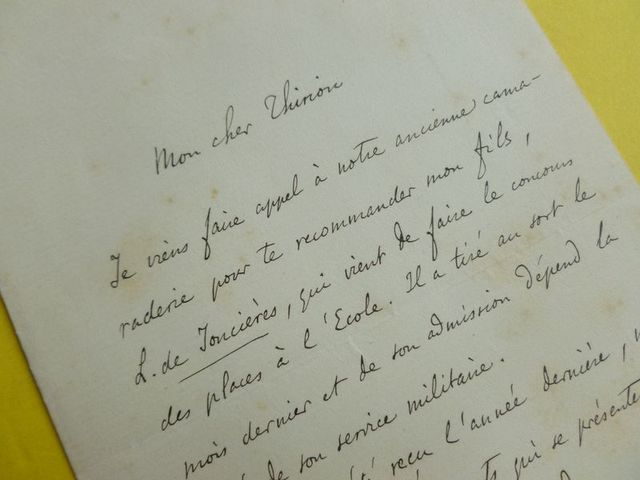 Mon cher Thirion
Je viens faire appel à notre ancienne cama-
raderie pour te recommander mon fils,
L. de Joncières, qui vient de faire le concours
des places à l'Ecole. Il a tiré au sort le
mois dernier et de son admission dépend la
de son service militaire.
reçu l'année dernière,
qui se présente